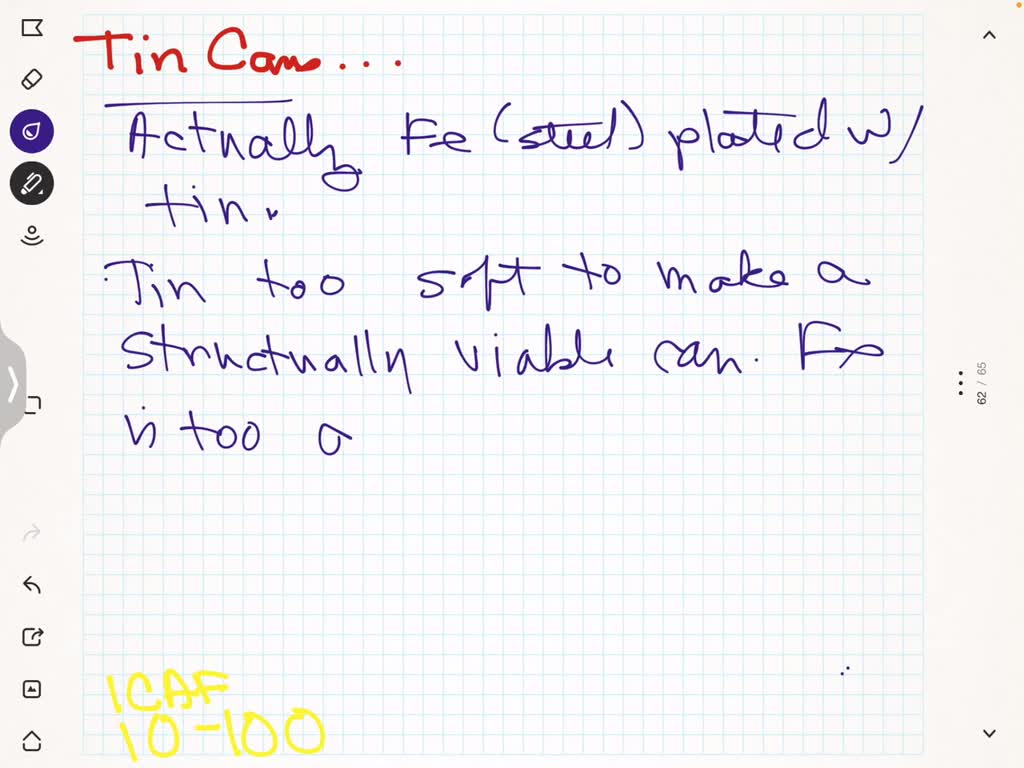 Tin Cans...
Actually Fe (steel) plated w/
tin.
Tin too soft to make a
structually viable can. Fe
is too a
ICAF
10-100
62 / 65